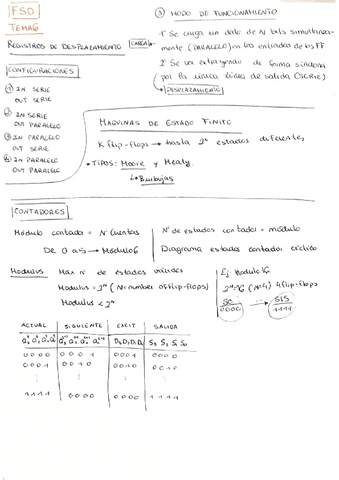 FSD
TEMA 6
REGISTROS DE DESPLAZAMIENTO
CARGA
③ MODO DE FUNCIONAMIENTO
1º Se carga un dato de N bits simultanea-
mente (PARALELO) en las entradas de los FF
2º Se va extrayendo de forma síncrona
por la única línea de salida (SERIE)
DESPLAZAMIENTO
CONFIGURACIONES
① IN SERIE
OUT SERIE
② IN SERIE
OUT PARALELO
③ IN PARALELO
OUT SERIE
④ IN PARALELO
OUT PARALELO
MAQUINAS DE ESTADO FINITO
K flip-flops → hasta 2ⁿ estados diferentes
• TIPOS: Moore y Mealy.
Burbujas
CONTADORES
Módulo contador = Nº Cuentas
De 0 a 5 → Módulo 6
Nº de estados contador = módulo
Diagrama estados contador cíclico
Modulus
Max nº de estados
Modulus = 2ⁿ (N = number of flip-flops)
Modulus < 2ⁿ
Ej: Modulo 16
2ⁿ=16 (N=4) 4 flip-flops
S0 → S15
0000 1111
ACTUAL SIGUIENTE EXCIT SALIDA
D₃ D₂ D₁ D₀ S₃ S₂ S₁ S₀
0000 0001 0001 0000
0001 0010 0010 0010
1111 0000 0000 1111